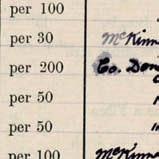 per 100
per 30 McKinn
per 200 Co. Don
per 50
per 50
per 100 McKinn